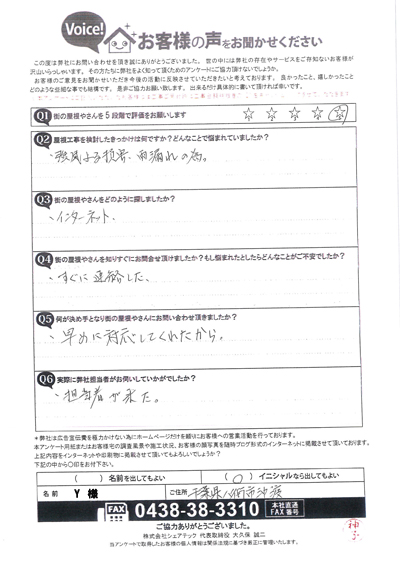 Voice! お客様の声をお聞かせください
この度は弊社にお問い合わせを頂き誠にありがとうございました。世の中には弊社の存在やサービスをご存知ないお客様が
沢山いらっしゃいます。その方たちに弊社をよく知って頂くためのアンケートにご協力頂けないでしょうか。
お客様のご意見をお聞かせいただき今後の活動に反映させていただきたいと考えております。良かったこと、嬉しかったこと
どのような些細な事でも結構です。是非ご協力お願い致します。出来るだけ具体的に書いて頂ければ幸いです。
Q1 街の屋根やさんを5段階で評価をお願いします ☆ ☆ ☆ ☆ ☆
Q2 屋根工事を検討したきっかけは何ですか?どんなことで悩まれていましたか?
雨漏れの為。
Q3 街の屋根やさんをどのように探しましたか?
・インターネット.
Q4 街の屋根やさんを知りすぐにお問合せ頂けましたか?もし悩まれたとしたらどんなことがご不安でしたか?
・すぐに連絡した。
Q5 何が決め手となり街の屋根やさんにお問い合わせ頂きましたか?
・早めに対応してくれたから。
Q6 実際に弊社担当者がお伺いしていかがでしたか?
・担当者が来た。
*弊社は広告宣伝費を極力かけない為にホームページだけを頼りにお客様への営業活動を行っております。
本アンケート用紙またはお客様宅の調査風景や施工状況、お客様の顔写真を随時ブログ形式のインターネットに掲載させて頂いております。
上記内容をインターネットや印刷物に掲載させて頂いてもよろしいでしょうか?
下記の中から〇印をお付下さい。
( )名前を出してもよい (〇)イニシャルなら出してもよい
名前 Y様 ご住所 千葉県八街市沖渡
FAX 0438-38-3310 本社直通 FAX番号
ご協力ありがとうございました。
株式会社シェアテック 代表取締役 大久保 誠二
当アンケートで取得したお客様の個人情報は関係法規に基づき厳正に管理いたします。